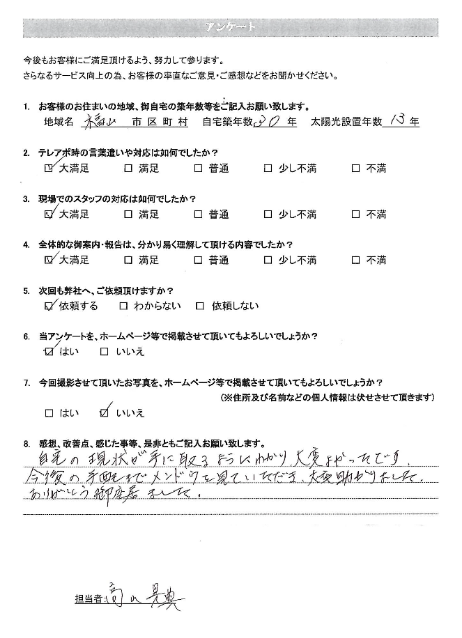 アンケート
今後もお客様にご満足頂けるよう、努力して参ります。
さらなるサービス向上の為、お客様の率直なご意見・ご感想などをお聞かせください。
1. お客様のお住まいの地域、御自宅の築年数等をご記入お願い致します。
地域名 福山 市区町村 自宅築年数 30 年 太陽光設置年数 13 年
2. テレアポ時の言葉遣いや対応は如何でしたか?
☑ 大満足 □ 満足 □ 普通 □ 少し不満 □ 不満
3. 現場でのスタッフの対応は如何でしたか?
☑ 大満足 □ 満足 □ 普通 □ 少し不満 □ 不満
4. 全体的な御案内・報告は、分かり易く理解して頂ける内容でしたか?
☑ 大満足 □ 満足 □ 普通 □ 少し不満 □ 不満
5. 次回も弊社へ、ご依頼頂けますか?
☑ 依頼する □ わからない □ 依頼しない
6. 当アンケートを、ホームページ等で掲載させて頂いてもよろしいでしょうか?
☑ はい □ いいえ
7. 今回撮影させて頂いたお写真を、ホームページ等で掲載させて頂いてもよろしいでしょうか?
(※住所及び名前などの個人情報は伏せさせて頂きます)
□ はい ☑ いいえ
8. 感想、改善点、感じた事等、是非ともご記入お願い致します。
自宅の現状が手に取るようにわかり大変よかったです。
今後の手配までメンドウを見ていただき、大変助かりました。
ありがとう御座居ました。
担当者